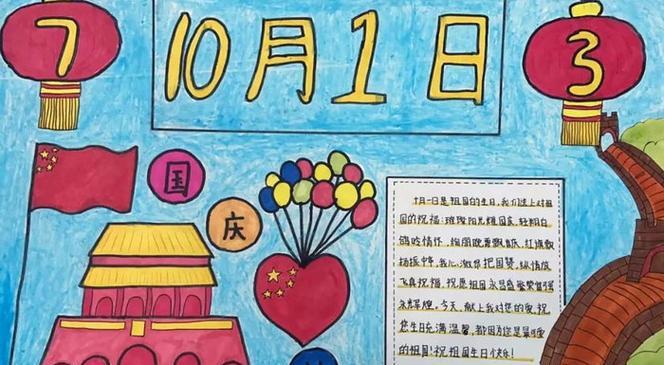 7
10月1日
3
国
庆
十月一日是祖国的生日,我们送上对祖
国的祝福:璀璨阳光耀国家,轻翔白
鸽吐情怀,绚丽晚
扬振中华,我心激昂把国赞,纵情放
飞真祝福,祝愿祖国永昌盛繁荣富强
永辉煌。今天,献上我对您的爱,祝
您生日充满温馨,都因为您是最可爱
的祖国!祝祖国生日快乐!